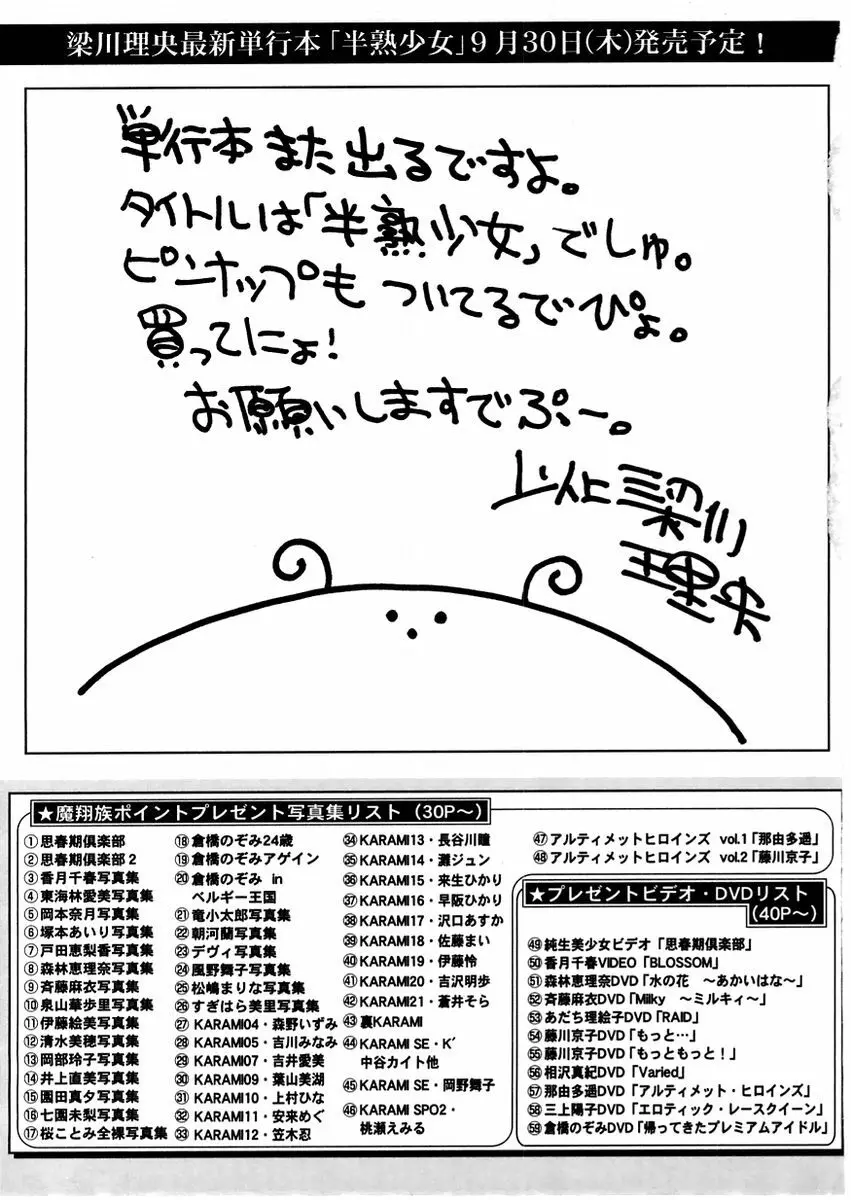 梁川理央最新単行本「半熟少女」9月30日(木)発売予定!
単行本また出るですよ。
タイトルは「半熟少女」でしゅ。
ピンナップもついてるでぴょ。
買ってにょ!
お願いしますでぷー。
以上梁川
理央
★魔翔族ポイントプレゼント写真集リスト(30P~)
①思春期倶楽部
②思春期倶楽部2
③香月千春写真集
④東海林愛美写真集
⑤岡本奈月写真集
⑥塚本あいり写真集
⑦戸田恵梨香写真集
⑧森林恵理奈写真集
⑨斉藤麻衣写真集
⑩泉山華歩里写真集
⑪伊藤絵美写真集
⑫清水美穂写真集
⑬岡部玲子写真集
⑭井上直美写真集
⑮園田真夕写真集
⑯七園未梨写真集
⑰桜ことみ全裸写真集
⑱倉橋のぞみ24歳
⑲倉橋のぞみアゲイン
⑳倉橋のぞみ in
ベルギー王国
㉑竜小太郎写真集
㉒朝河蘭写真集
㉓デヴィ写真集
㉔風野舞子写真集
㉕松嶋まりな写真集
㉖すぎはら美里写真集
㉗KARAMI04・森野いずみ
㉘KARAMI05・吉川みなみ
㉙KARAMI07・吉井愛美
㉚KARAMI09・葉山美湖
㉛KARAMI10・上村ひな
㉜KARAMI11・安来めぐ
㉝KARAMI12・笠木忍
㉞KARAMI13・長谷川瞳
㉟KARAMI14・灘ジュン
㊱KARAMI15・来生ひかり
㊲KARAMI16・早阪ひかり
㊳KARAMI17・沢口あすか
㊴KARAMI18・佐藤まい
㊵KARAMI19・伊藤怜
㊶KARAMI20・吉沢明歩
㊷KARAMI21・蒼井そら
㊸裏KARAMI
㊹KARAMI SE・K'
中谷カイト他
㊺KARAMI SE・岡野舞子
㊻KARAMI SPO2・
桃瀬えみる
㊼アルティメットヒロインズ vol.1「那由多遥」
㊽アルティメットヒロインズ vol.2「藤川京子」
★プレゼントビデオ・DVDリスト
(40P~)
㊾純生美少女ビデオ「思春期倶楽部」
㊿香月千春VIDEO「BLOSSOM」
51森林恵理奈DVD「水の花 ~あかいはな~」
52斉藤麻衣DVD「Milky ~ミルキィ~」
53あだち理絵子DVD「RAID」
54藤川京子DVD「もっと…」
55藤川京子DVD「もっともっと!」
56相沢真紀DVD「Varied」
57那由多遥DVD「アルティメット・ヒロインズ」
58三上陽子DVD「エロティック・レースクイーン」
59倉橋のぞみDVD「帰ってきたプレミアムアイドル」